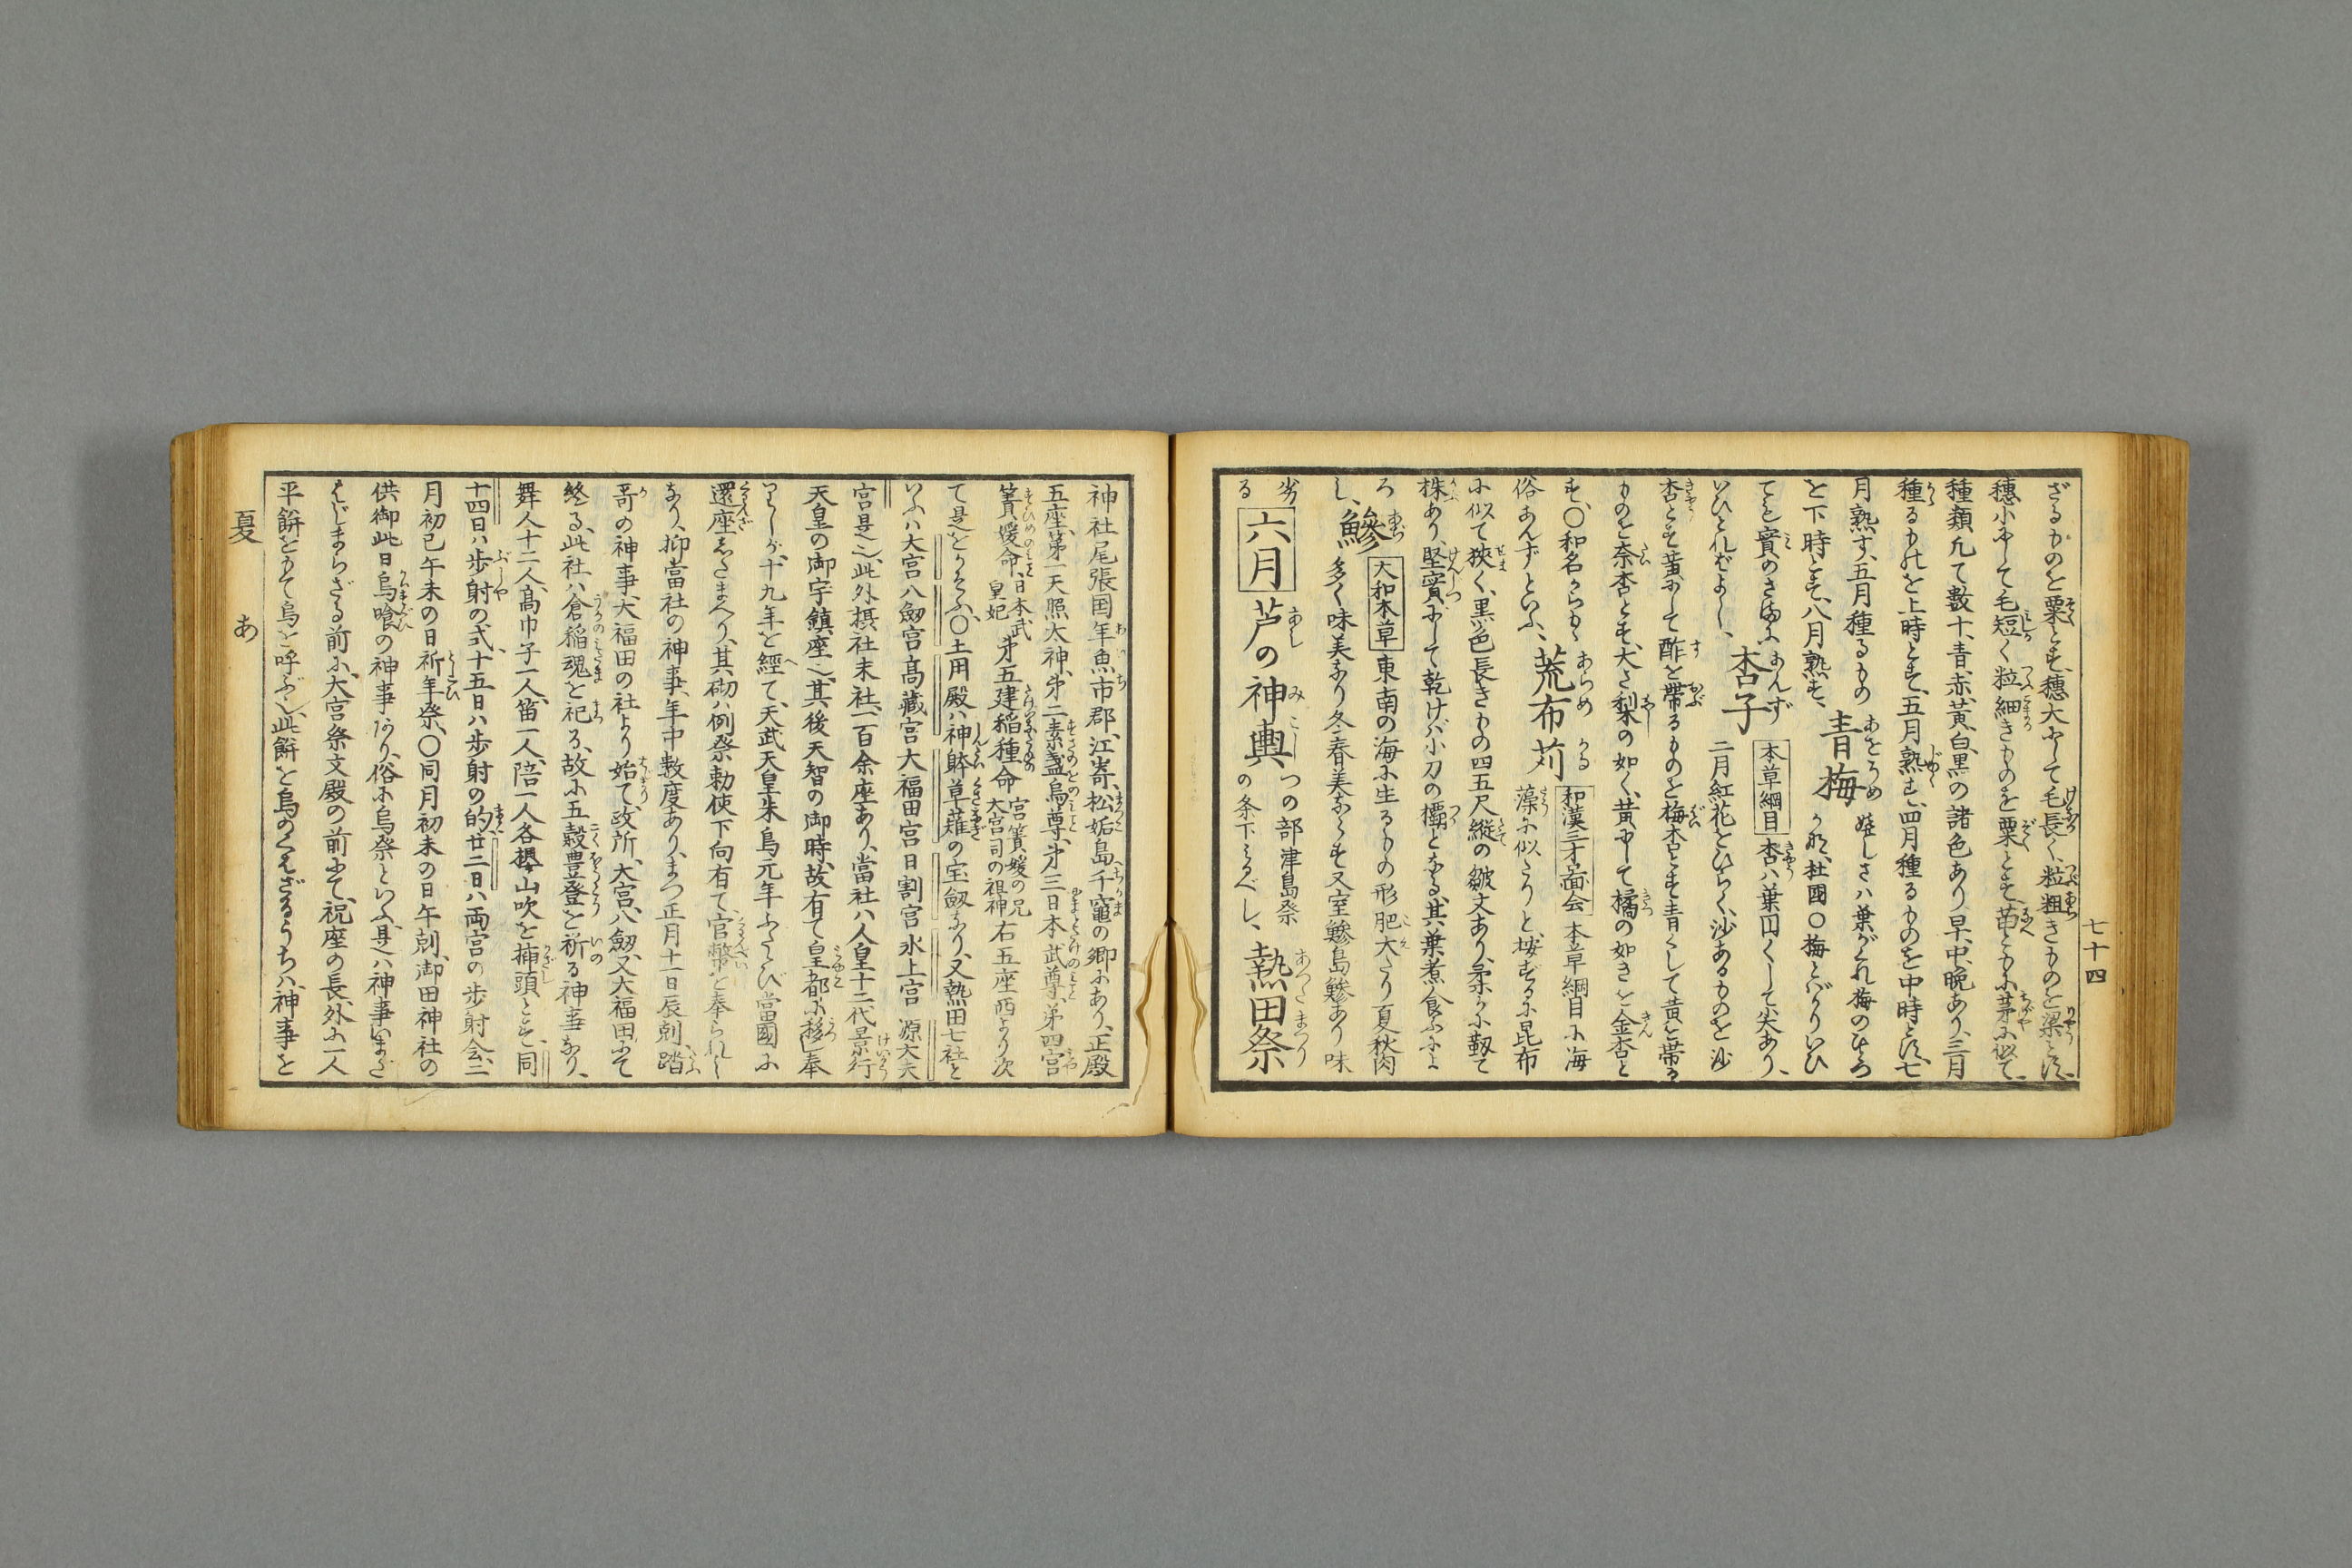 七十四
ざるものを粟とす、穗大にして毛長く、粒粗きものを粱とし、
穗小にして毛短く粒細きものを粟とす、苗ともに茅に似て、
種類凡て數十、青、赤、黃、白、黒の諸色あり、早、中、晩あり、三月
種るものを上時とす、五月熟す、四月種るものを中時とし、七
月熟す、五月種るもの
を下時とす、八月熟す、
青梅 娃しさハ葉がくれ梅のひそ
かな、杜國〇梅とばかりいひ
ても實のさたに
いひとればよし、
杏子 本草綱目 杏ハ葉円くして尖あり、
二月紅花をひらく、沙あるものを沙
杏とす黃にして酢を帶るものを梅杏とす青くして黃を帶る
ものを柰杏とす、大さ梨の如く、黃にして橘の如きを金杏と
す、〇和名からもゝ
俗あんずといふ、
荒布苅 和漢三才圖会 本草綱目に海
藻に似たりと、按ずるに昆布
に似て狹く、黒色長きもの四五尺縱の皺文あり、柔かに靱て
株あり、堅實にして乾けバ小刀の欛となる、其葉煮食ふによ
ろ
し、
鰺 大和本草 東南の海に生るもの形肥大なり夏秋肉
多く味美なり冬春美ならず又室鰺島鰺あり味
劣
る
六月 芦の神輿 つの部津島祭
の条下みるべし、
熱田祭
神社尾張国年魚市郡、江嵜、松姤島、千竈の郷にあり、正殿
五座、第一天照大神、第二素盞烏尊、第三日本武尊、第四宮
簀媛命、日本武
皇妃 第五建稲種命 宮簀媛の兄
大宮司の祖神 右五座西より次
て是をかぞふ、〇土用殿ハ神躰草薙の宝劔なり、又熱田七社と
いふハ大宮八劔宮高藏宮大福田宮日割宮氷上宮源大夫
宮是也、此外摂社末社、一百余座あり、當社ハ人皇十二代景行
天皇の御宇鎮座也、其後天智の御時、故有て皇都に移し奉
りしが、十九年を經て、天武天皇朱鳥元年ふたゝび當國に
還座なさまへり、其砌ハ例祭勅使下向有て、官幣を奉られし
なり、抑當社の神事、年中数度あり、まづ正月十一日辰尅、踏
哥の神事、大福田の社より始て、政所、大宮、八劔、又大福田にて
終る、此社ハ倉稲魂を祀る、故に五穀豊登を祈る神事なり、
舞人十二人、髙巾子一人、笛一人、陪一人各櫻山吹を挿頭とす、同
十四日ハ歩射の式、十五日ハ歩射の的、廿二日ハ両宮の歩射会、二
月初巳午未の日祈年祭、〇同月初未の日午尅、御田神社の
供御此日烏喰の神事あり、俗に烏祭といふ、是ハ神事いまだ
はじまらざる前に、大宮祭文殿の前にて、祝座の長、外に一人
平餅をもて烏を呼ぶ也、此餅を烏のくはざるうちハ、神事を
夏 あ